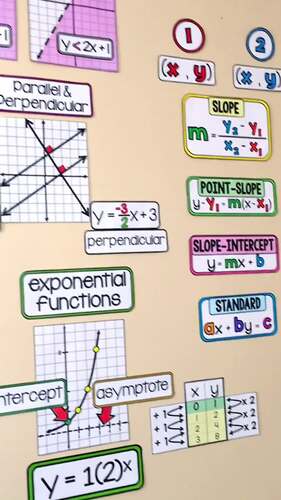 y < 2x+1
1
2
(x, y)
(x, y
Parallel &
Perpendicular
SLOPE
m = y₂ - y₁
x₂ - x₁
POINT-SLOPE
y-y₁ = m(x-x₁)
y = -3/2x+3
perpendicular
SLOPE-INTERCEPT
y = mx + b
exponential
functions
STANDARD
ax + by = c
ntercept
asymptote
x y
0 1
1 2
2 4
3 8
+ 1
+ 1
+ 1
x 2
x 2
x 2
y = 1(2)ˣ